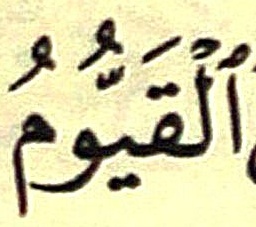 ٱلْقَيُّومُ